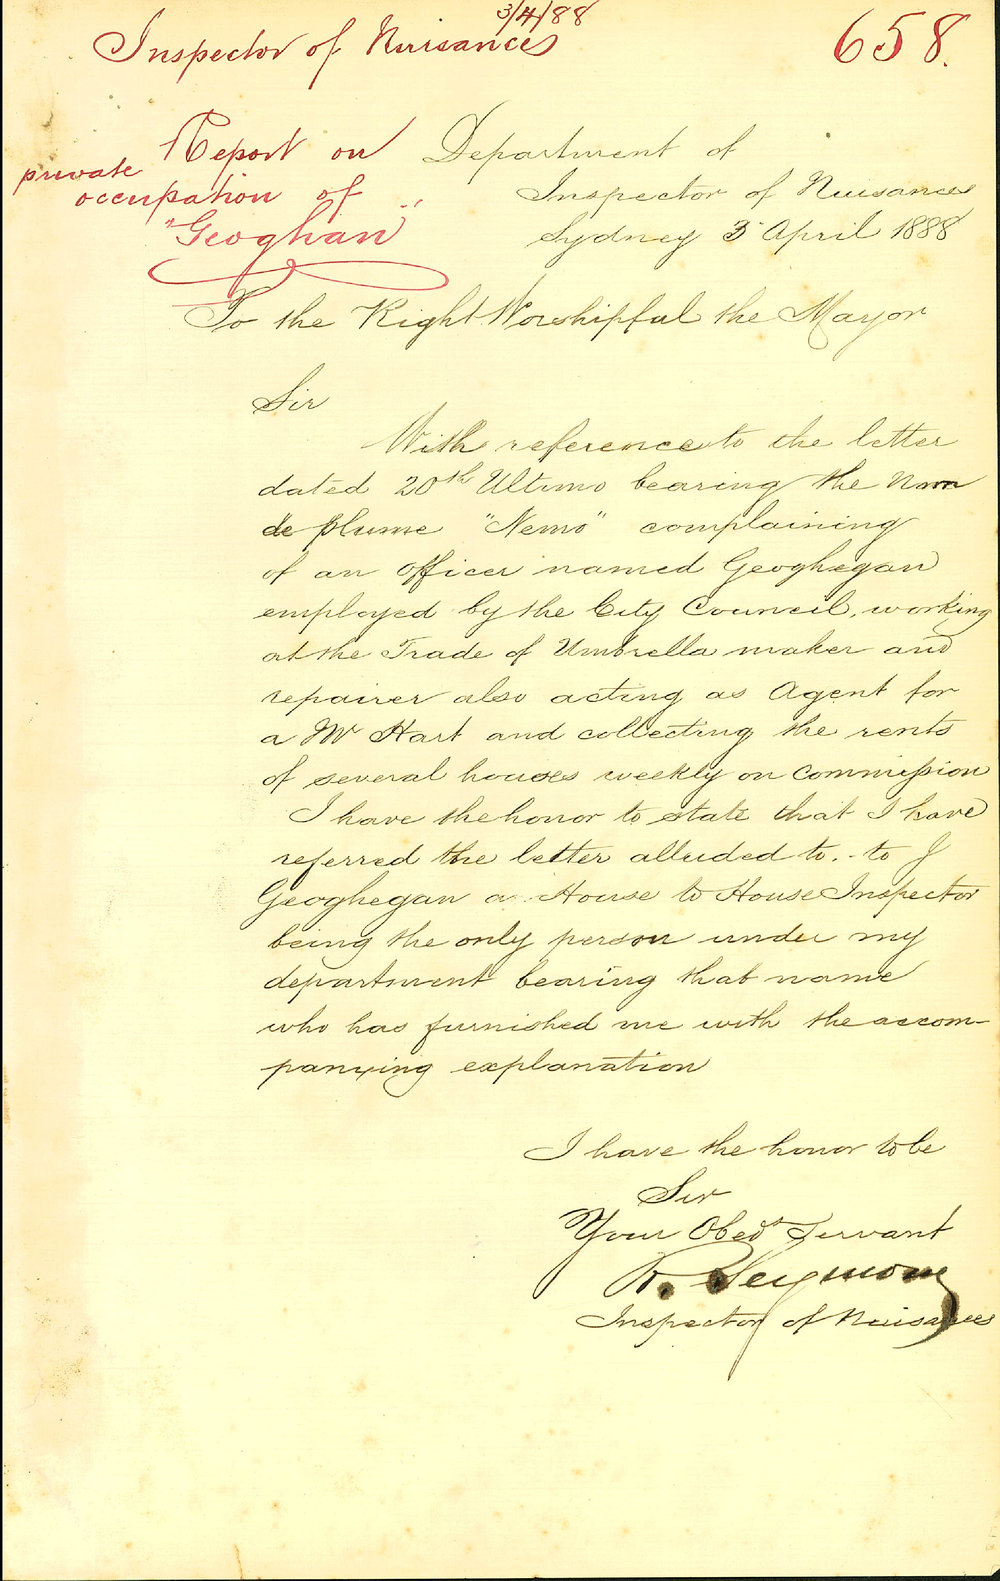 3/4/88
Inspector of Nuisances
658.
Report on
private
occupation of
"Geoghan"
Department of
Inspector of Nuisances
Sydney 3 April 1888
To the Right Worshipful the Mayor
Sir
With reference to the letter
dated 20th Ultimo bearing the Nom
de plume "Nemo" complaining
of an officer named Geoghegan
employed by the City Council, working
at the Trade of Umbrella maker and
repairer also acting as Agent for
a Mr Hart and collecting the rents
of several houses weekly on Commission
I have the honor to state that I have
referred the letter alluded to. - to J
Geoghegan a House to House Inspector
being the only person under my
department bearing that name
who has furnished me with the accom-
panying explanation
I have the honor to be
Sir
Your Obedt Servant
R. Seymour
Inspector of Nuisances